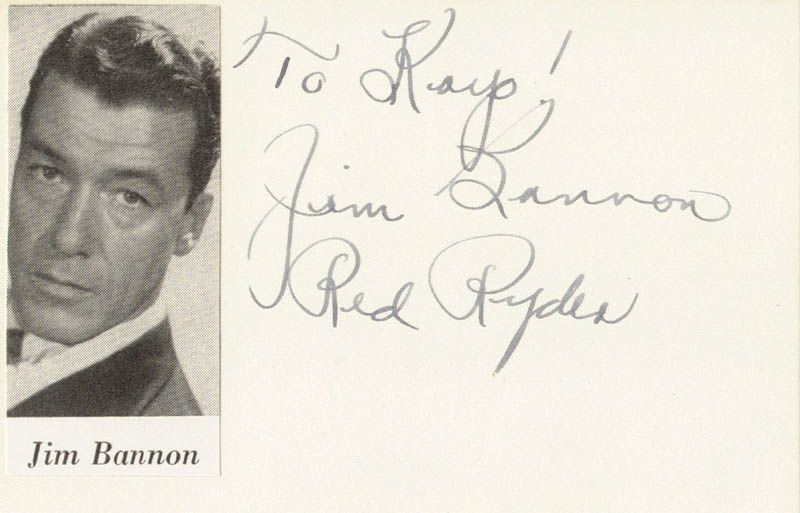 To Kayo!
Jim Bannon
Red Ryder
Jim Bannon